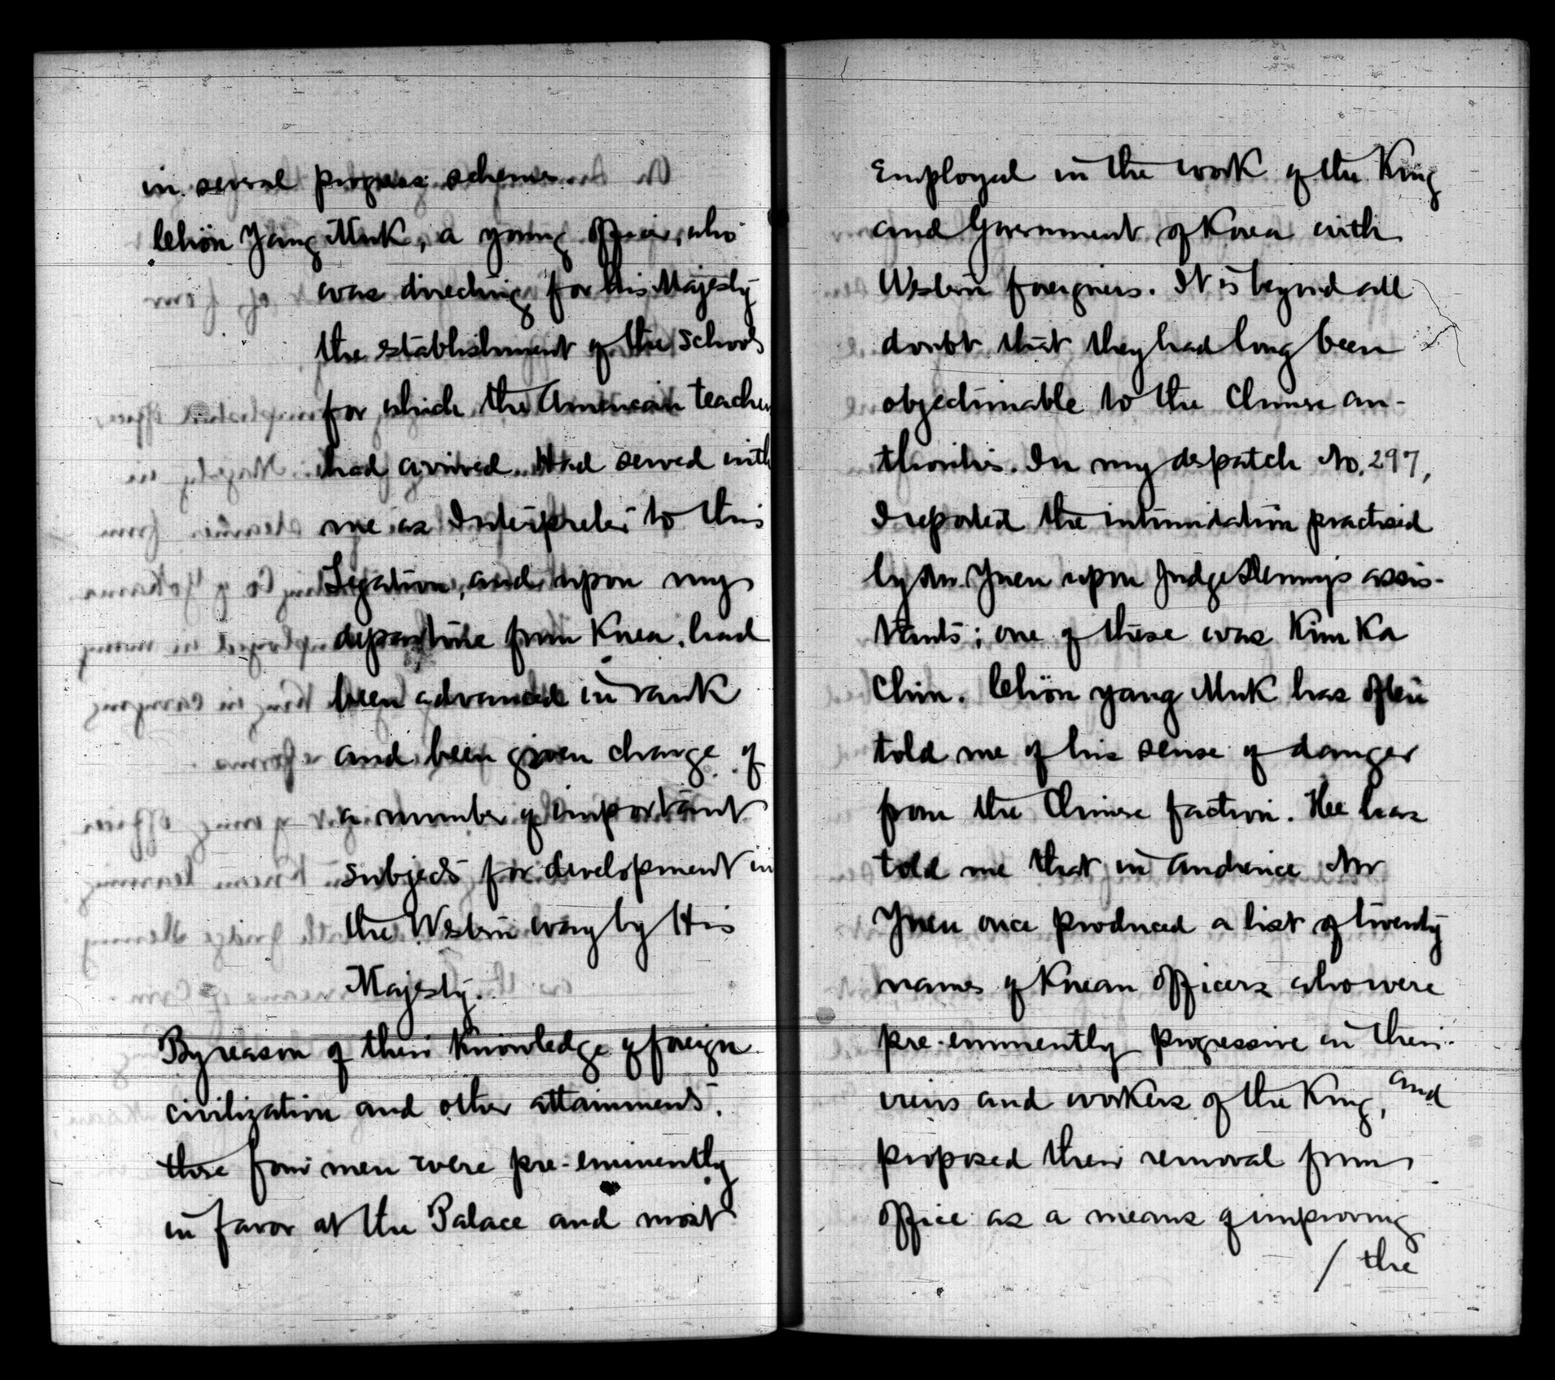 in several progress schemes
Chön Yang Muk, a young officer, who
was directing for His Majesty
the establishment of the schools
for which the American teachers
had arrived. Had served with
me as Interpreter to this
Legation, and upon my
departure from Korea, had
been advanced in rank
and been given charge of
a number of important
subjects for development in
the Western way by His
Majesty.
By reason of their knowledge of foreign
civilization and other attainments,
these four men were pre-eminently
in favor at the Palace and most
employed in the work of the King
and Government of Korea with
Western foreigners. It is beyond all
doubt that they had long been
objectionable to the Chinese au-
thorities. In my despatch No. 297,
I reported the intimidation practised
by Mr. Yuen upon Judge Denny's assis-
tants; one of these was Kim Ka
Chin. Chön Yang Muk has often
told me of his sense of danger
from the Chinese faction. He has
told me that in audience Mr
Yuen once produced a list of twenty
names of Korean officers who were
pre-eminently progressive in their
views and workers of the King, and
proposed their removal from
office as a means of improving
/ the